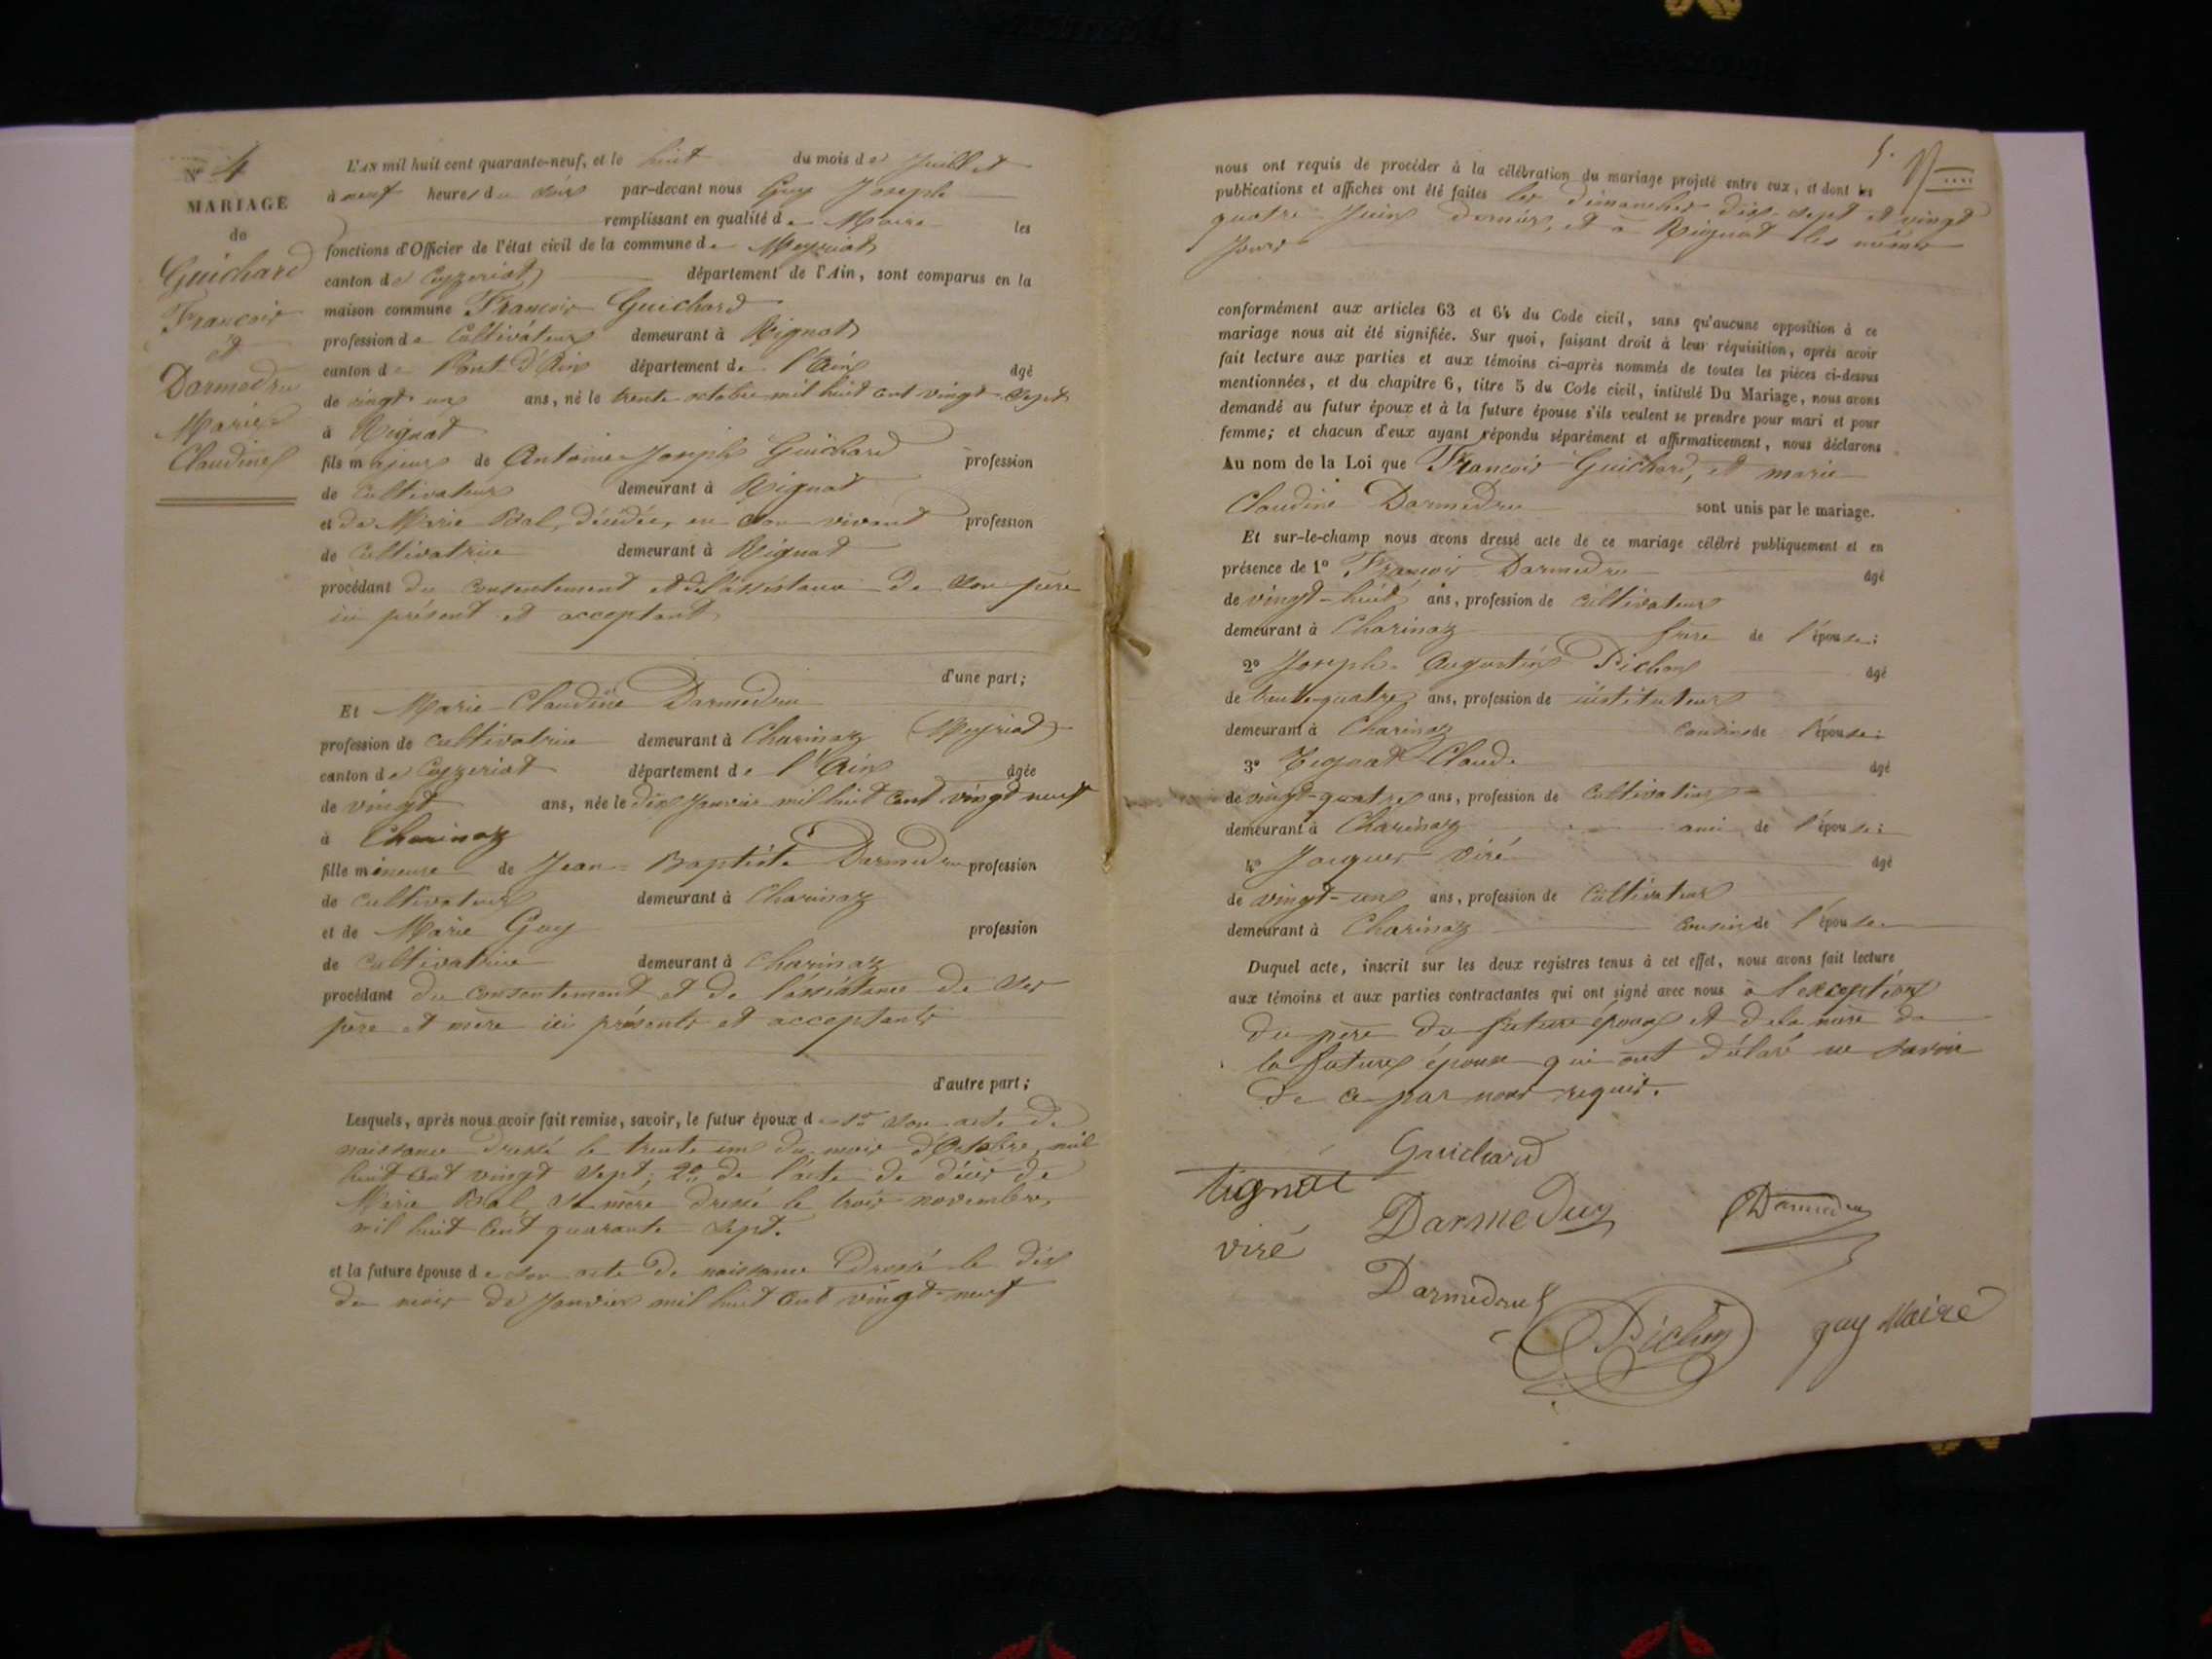 N° 4
MARIAGE
de
Guichard
François
et
Darmedru
Marie
Claudine
L'AN mil huit cent quarante-neuf, et le huit du mois de Juillet
à neuf heures du soir par-devant nous Guy Joseph
remplissant en qualité de Maire les
fonctions d'Officier de l'état civil de la commune de Meyriat
canton de Ceyzeriat département de l'Ain, sont comparus en la
maison commune François Guichard
profession de Cultivateur demeurant à Rignat
canton de Pont d'Ain département de l'Ain âgé
de vingt un ans, né le trente octobre mil huit cent vingt-sept
à Rignat
fils majeur de Antoine-Joseph Guichard profession
de Cultivateur demeurant à Rignat
et de Marie Bal, décédée, en son vivant profession
de Cultivatrice demeurant à Rignat
procédant du consentement et de l'assistance de son père
ici présent et acceptant
d'une part;
Et Marie-Claudine Darmedru
profession de cultivatrice demeurant à Charinaz (Meyriat)
canton de Ceyzeriat département de l'Ain âgée
de vingt ans, née le dix Janvier mil huit cent vingt neuf
à Charinaz
fille mineure de Jean-Baptiste Darmedru profession
de cultivateur demeurant à Charinaz
et de Marie Guy profession
de Cultivatrice demeurant à Charinaz
procédant du consentement et de l'assistance de ses
père et mère ici présents et acceptants
d'autre part;
Lesquels, après nous avoir fait remise, savoir, le futur époux de 1° son acte de
naissance dressé le trente un du mois d'Octobre mil
huit cent vingt sept; 2° de l'acte de décès de
Marie Bal, sa mère dressé le trois novembre,
mil huit cent quarante sept.
et la future épouse de son acte de naissance dressé le dix
du mois de Janvier mil huit cent vingt-neuf
5.
nous ont requis de procéder à la célébration du mariage projeté entre eux, et dont les
publications et affiches ont été faites les dimanches dix-sept et vingt
quatre Juin dernier, et à Rignat les mêmes
jours
conformément aux articles 63 et 64 du Code civil, sans qu'aucune opposition à ce
mariage nous ait été signifiée. Sur quoi, faisant droit à leur réquisition, après avoir
fait lecture aux parties et aux témoins ci-après nommés de toutes les pièces ci-dessus
mentionnées, et du chapitre 6, titre 5 du Code civil, intitulé Du Mariage, nous avons
demandé au futur époux et à la future épouse s'ils veulent se prendre pour mari et pour
femme; et chacun d'eux ayant répondu séparément et affirmativement, nous déclarons
Au nom de la Loi que François Guichard, et marie
Claudine Darmedru sont unis par le mariage.
Et sur-le-champ nous avons dressé acte de ce mariage célébré publiquement et en
présence de 1° François Darmedru âgé
de vingt-huit ans, profession de cultivateur
demeurant à Charinaz frère de l'épouse;
2° Joseph-Augustin Pichon âgé
de trente-quatre ans, profession de instituteur
demeurant à Charinaz cousin de l'épouse;
3° Tignat Claude âgé
de vingt-quatre ans, profession de Cultivateur
demeurant à Charinaz ami de l'épouse;
4° Jacques Viré âgé
de vingt-un ans, profession de Cultivateur
demeurant à Charinaz cousin de l'épouse
Duquel acte, inscrit sur les deux registres tenus à cet effet, nous avons fait lecture
aux témoins et aux parties contractantes qui ont signé avec nous à l'exception
du père du futur époux et de la mère de
la future épouse qui ont déclaré ne savoir
de ce par nous requis.
Guichard
tignat
Darmedru
Darmedru
viré
Darmedru
Pichon
guy Maire